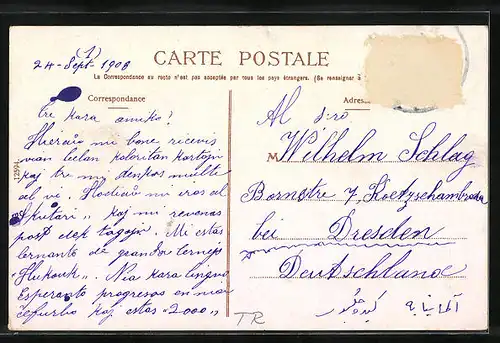 (1)
24-Sept- 1908
CARTE POSTALE
La Correspondance au recto n'est pas acceptée par tous les pays étrangers. (Se renseigner à
Correspondance
Adres
Tre kara amiko!
Hieraŭ mi bone ricevis
vian belan koloritan kartojn
kaj tre mi dankos multe
al vi. Hodiaŭ mi iros al
Skutari" kaj mi revenas
post dek tagojn. Mi estas
lernanto de granda lernejo
. Nia kara lingvo
Esperanto progresas en nia
kaj estas "2000"
Al s-ro
M Wilhelm Schlag
Bornstr. 7, Koetzschenbroda
bei Dresden
Deutschland
TR
12594